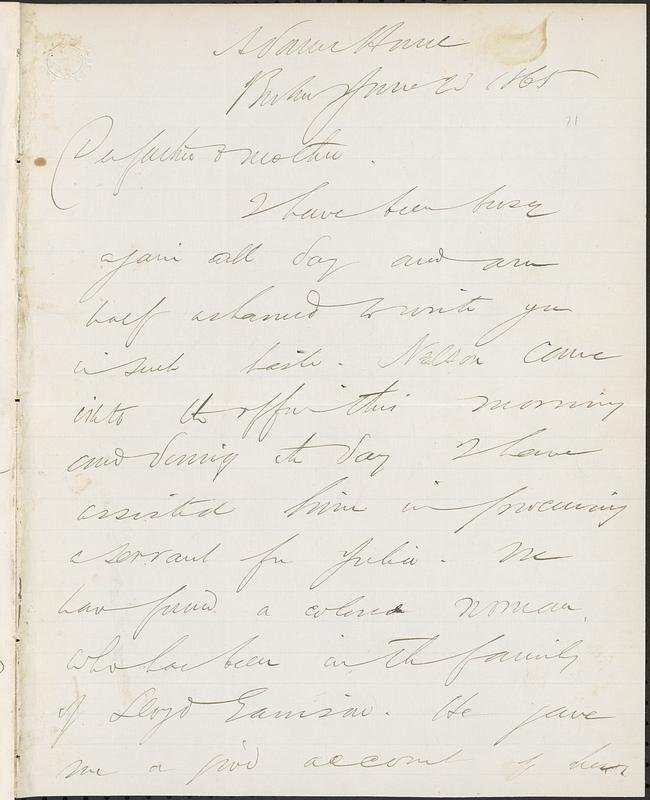 Adams House
Boston June 23 1865
71
Dear father & mother.
I have been busy
again all day and am
half ashamed to write you
in such haste. Nelson came
into the office this morning
and during the day I have
assisted him in procuring
a servant for Julia. We
have found a colored woman
who has been in the family
of Lloyd Garrison. He gave
me a good account of her